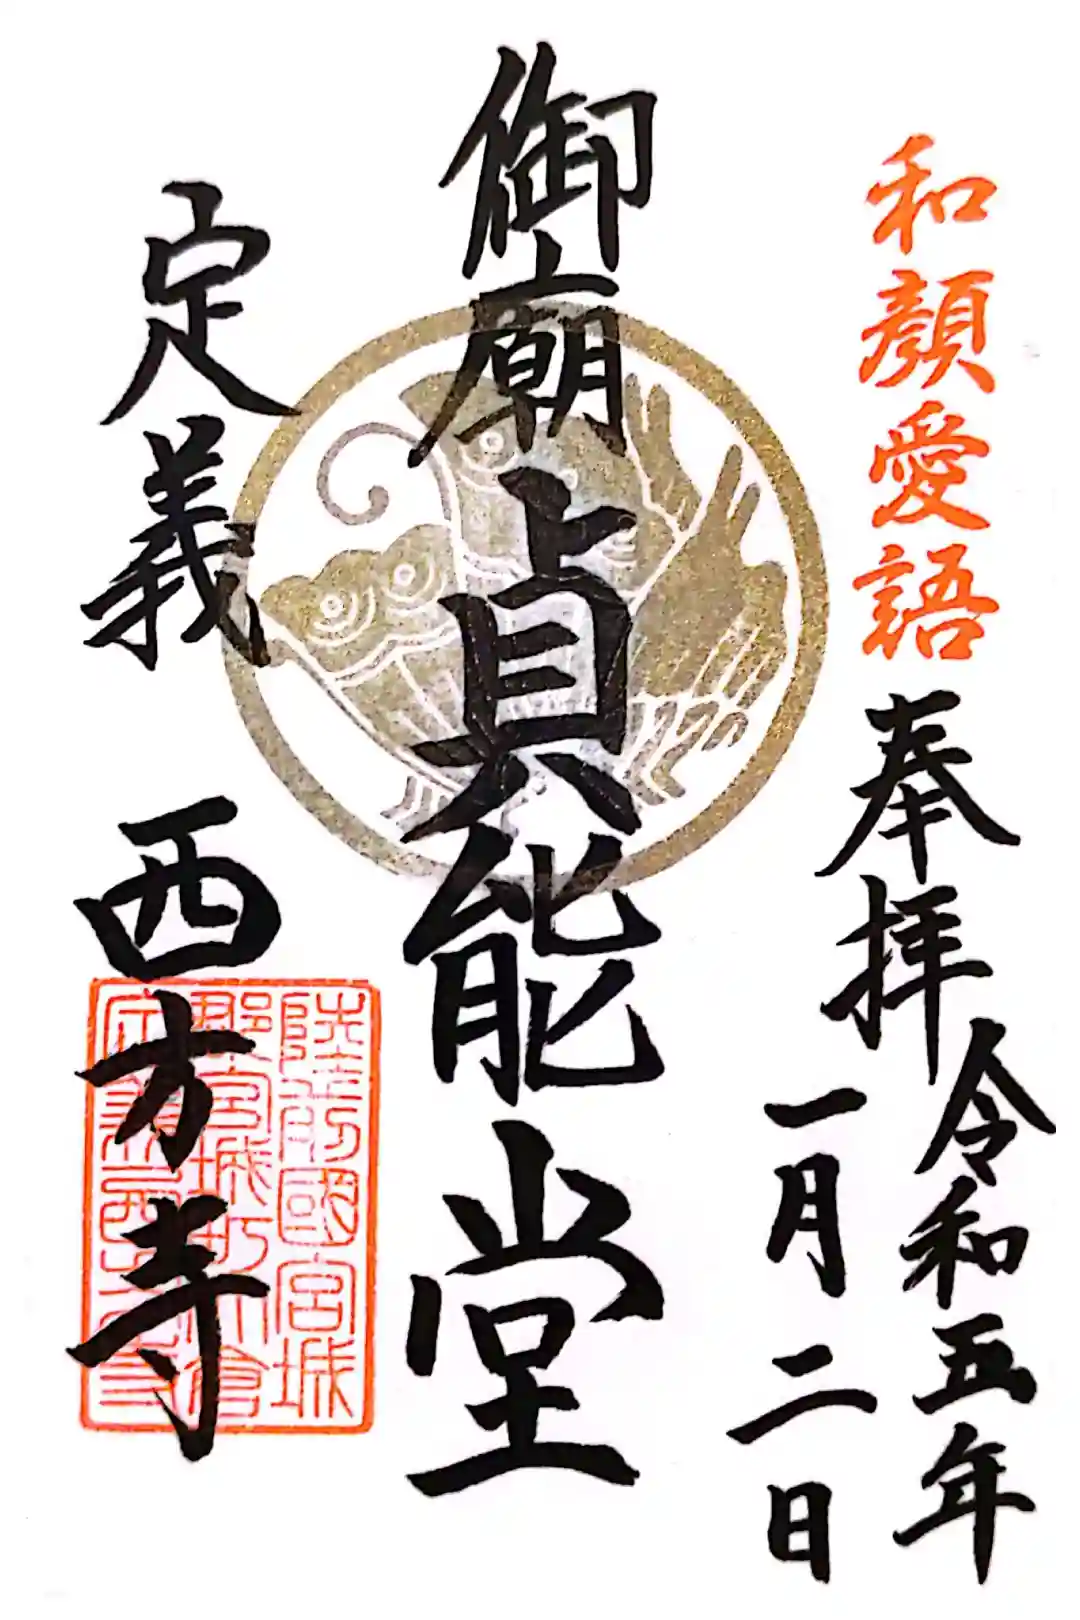 和顔愛語
奉拝
令和五年
一月二日
御廟貞能堂
定義
西方寺
陸前國宮城
郡宮城町大倉
定義西方寺